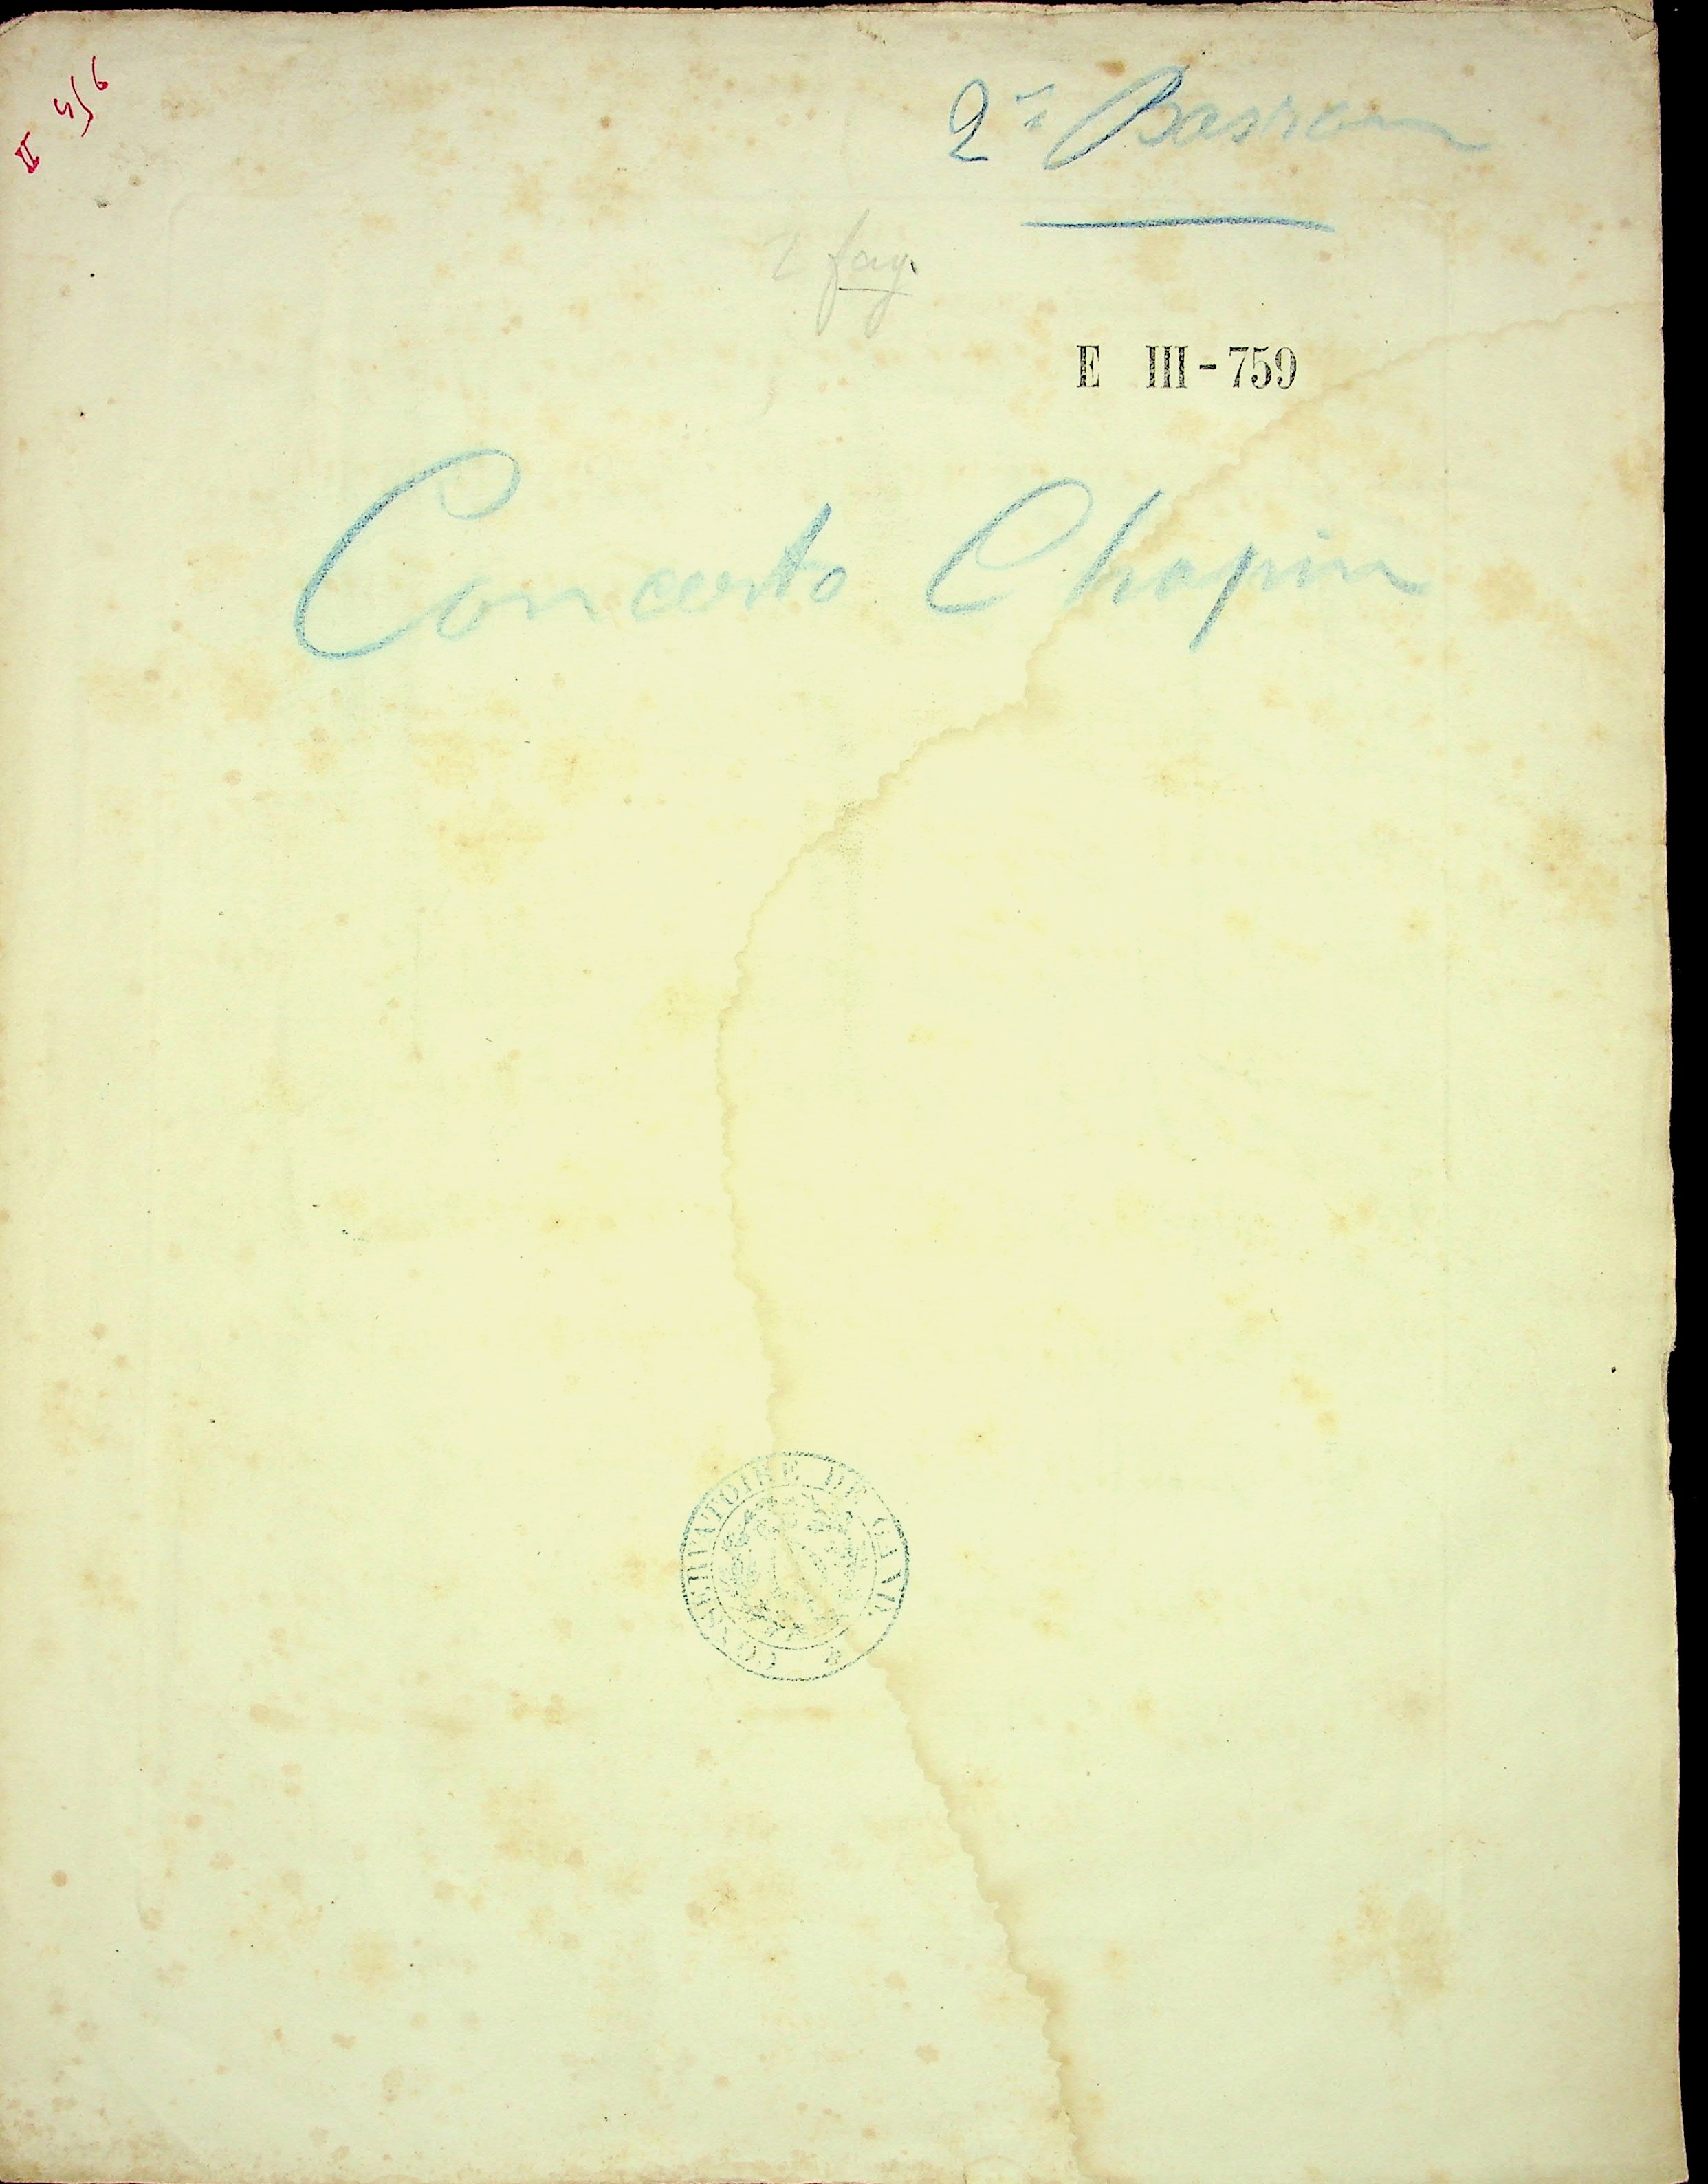 II 5/6
2e Basson
2 fag.
E III - 759
Concerto Chopin
CONSERVATOIRE DE